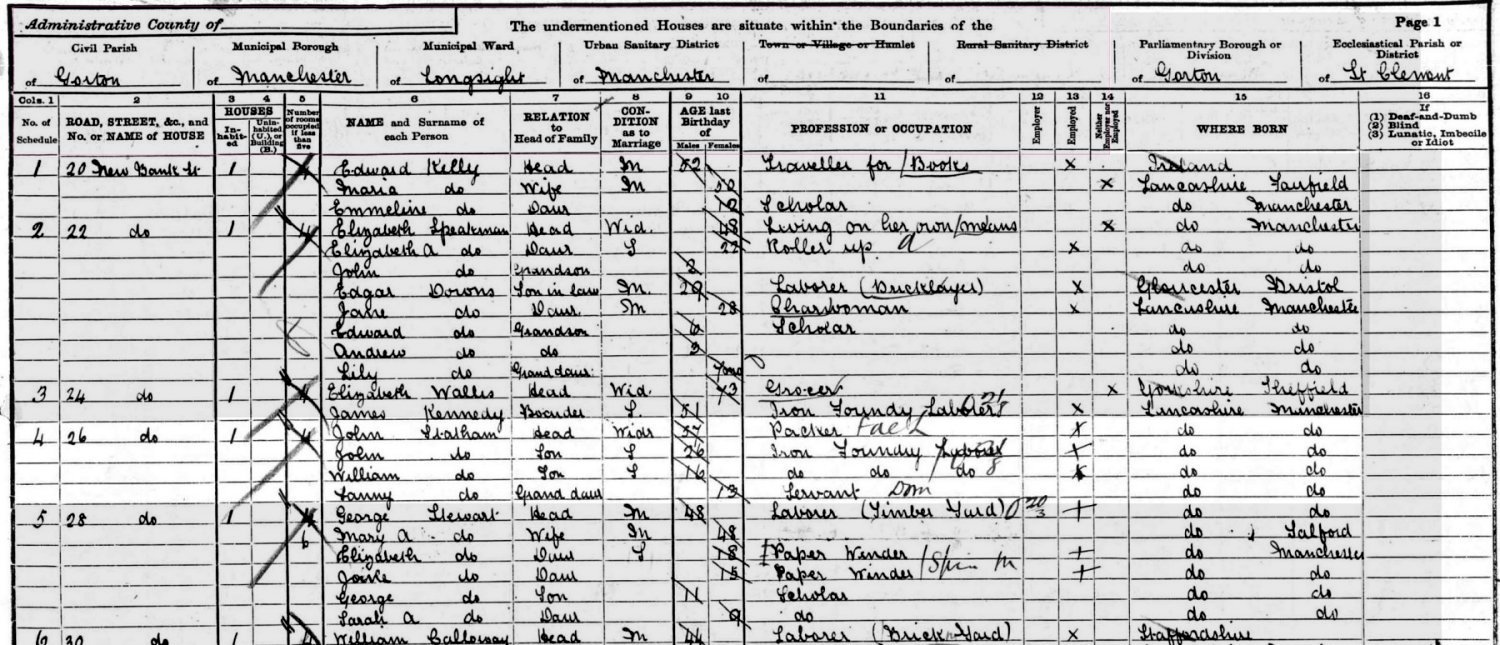 Administrative County of
The undermentioned Houses are situate within the Boundaries of the
Page 1
Civil Parish
Municipal Borough
Municipal Ward
Urban Sanitary District
Town or Village or Hamlet
Rural Sanitary District
Parliamentary Borough or Division
Ecclesiastical Parish or District
of Gorton of Manchester of Longsight of Manchester of of of Gorton of St Clement
Cols. 1 2 3 4 5 6 7 8 9 10 11 12 13 14 15 16
No. of Schedule
ROAD, STREET, &c., and No. or NAME of HOUSE
HOUSES
Inhabited
Uninhabited (U.), or Building (B.)
Number of rooms occupied if less than five
NAME and Surname of each Person
RELATION to Head of Family
CONDITION as to Marriage
AGE last Birthday of
Males Females
PROFESSION or OCCUPATION
Employer
Employed
Neither Employer nor Employed
WHERE BORN
If
(1) Deaf-and-Dumb
(2) Blind
(3) Lunatic, Imbecile or Idiot
1 20 New Bank St 1 4 Edward Kelly Head M 52 Traveller for Books x Ireland
Maria do Wife M 50 x Lancashire Fairfield
Emmeline do Daur 10 Scholar do Manchester
2 22 do 1 4 Elizabeth Speakman Head Wid. 48 Living on her own means x do Manchester
Elizabeth A do Daur S 22 Roller up x do do
John do Grandson 2 do do
Edgar Downs Son in law M. 29 Laborer (Bricklayer) x Gloucester Bristol
Jane do Daur M 28 Charwoman x Lancashire Manchester
Edward do Grandson 6 Scholar do do
Andrew do do 3 do do
Lily do Grand daur do do
3 24 do 1 4 Elizabeth Wallis Head Wid. 73 Grocer x Yorkshire Sheffield
James Kennedy Boarder S. 51 Iron Foundy Laborer x Lancashire Manchester
4 26 do 1 4 John Statham Head Widr 57 Packer x do do
John do Son S 26 Iron Foundry x do do
William do Son S 16 do do do x do do
Fanny do Grand daur 13 Servant Dom do do
5 28 do 1 4 George Stewart Head M 48 Laborer (Timber Yard) x do do
6 Mary A do Wife M 48 do Salford
Elizabeth do Daur S 18 Paper Winder x do Manchester
do Daur 15 Paper Winder x do do
George do Son 11 Scholar do do
Sarah A do Daur 9 do do do
6 30 do 1 4 William Galloway Head M 44 Laborer (Brick Yard) x Staffordshire